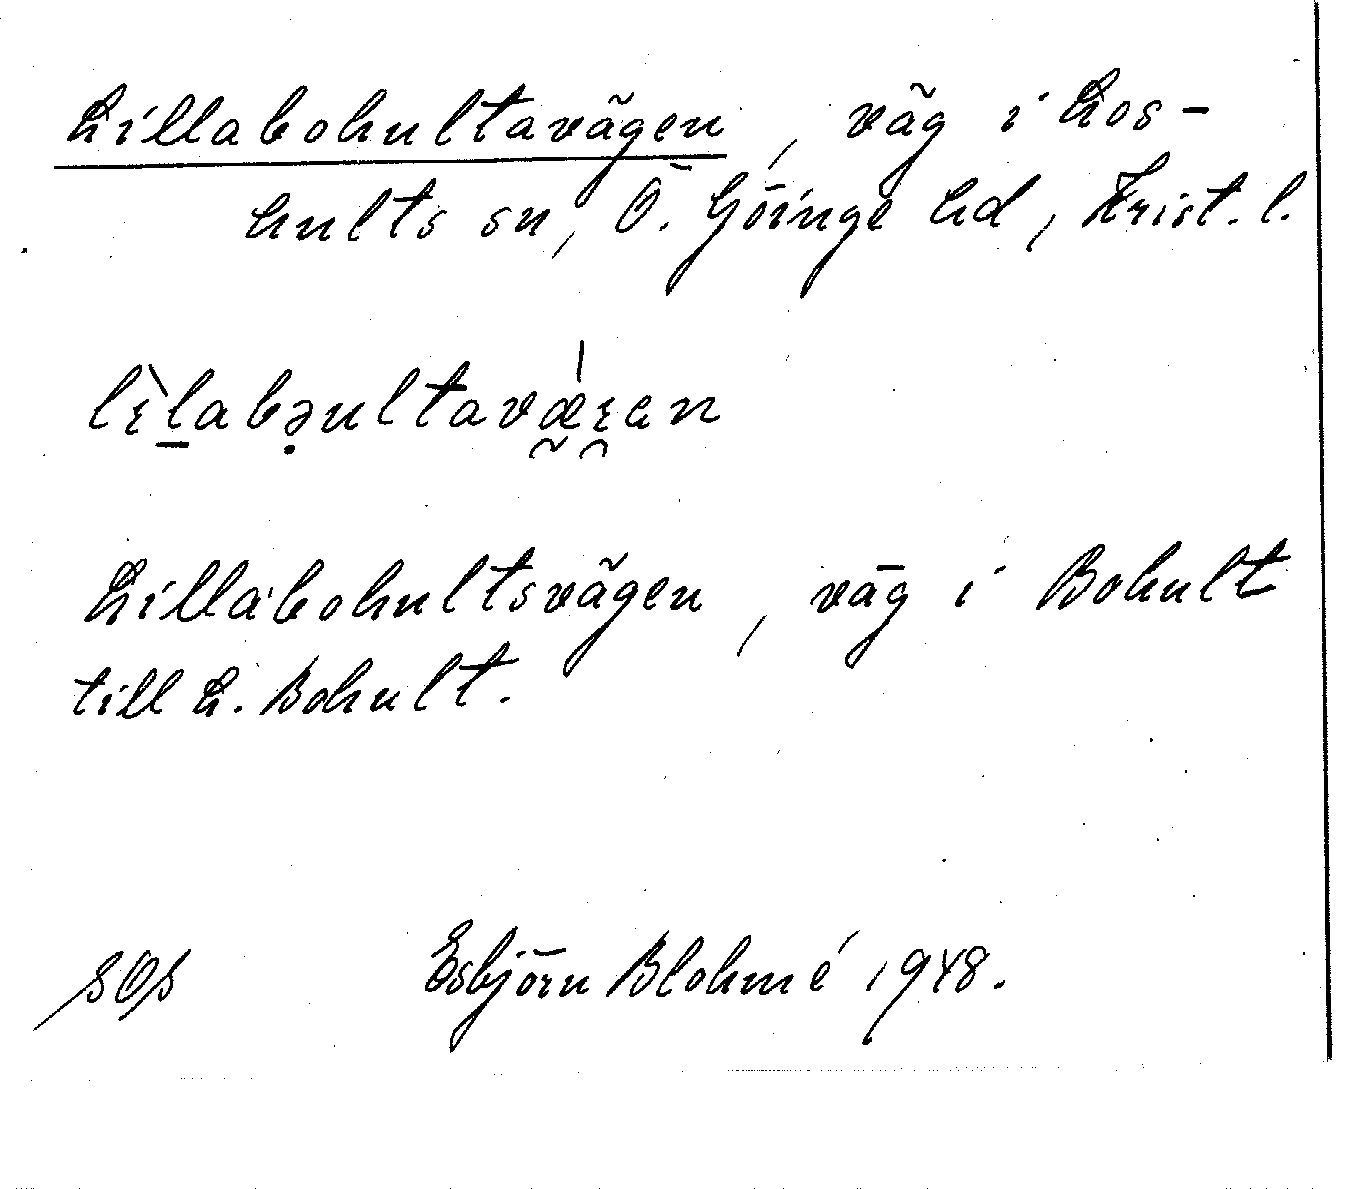 Lillabohultavägen, väg i Los-
hults sn, Ö. Göinge hd, Krist. l.
lɪ̀l̠abə̣ultavǽ̰ɪ̯an
Lillabohultsvägen, väg i Bohult
till L. Bohult.
SOS Esbjörn Blohmé 1948.